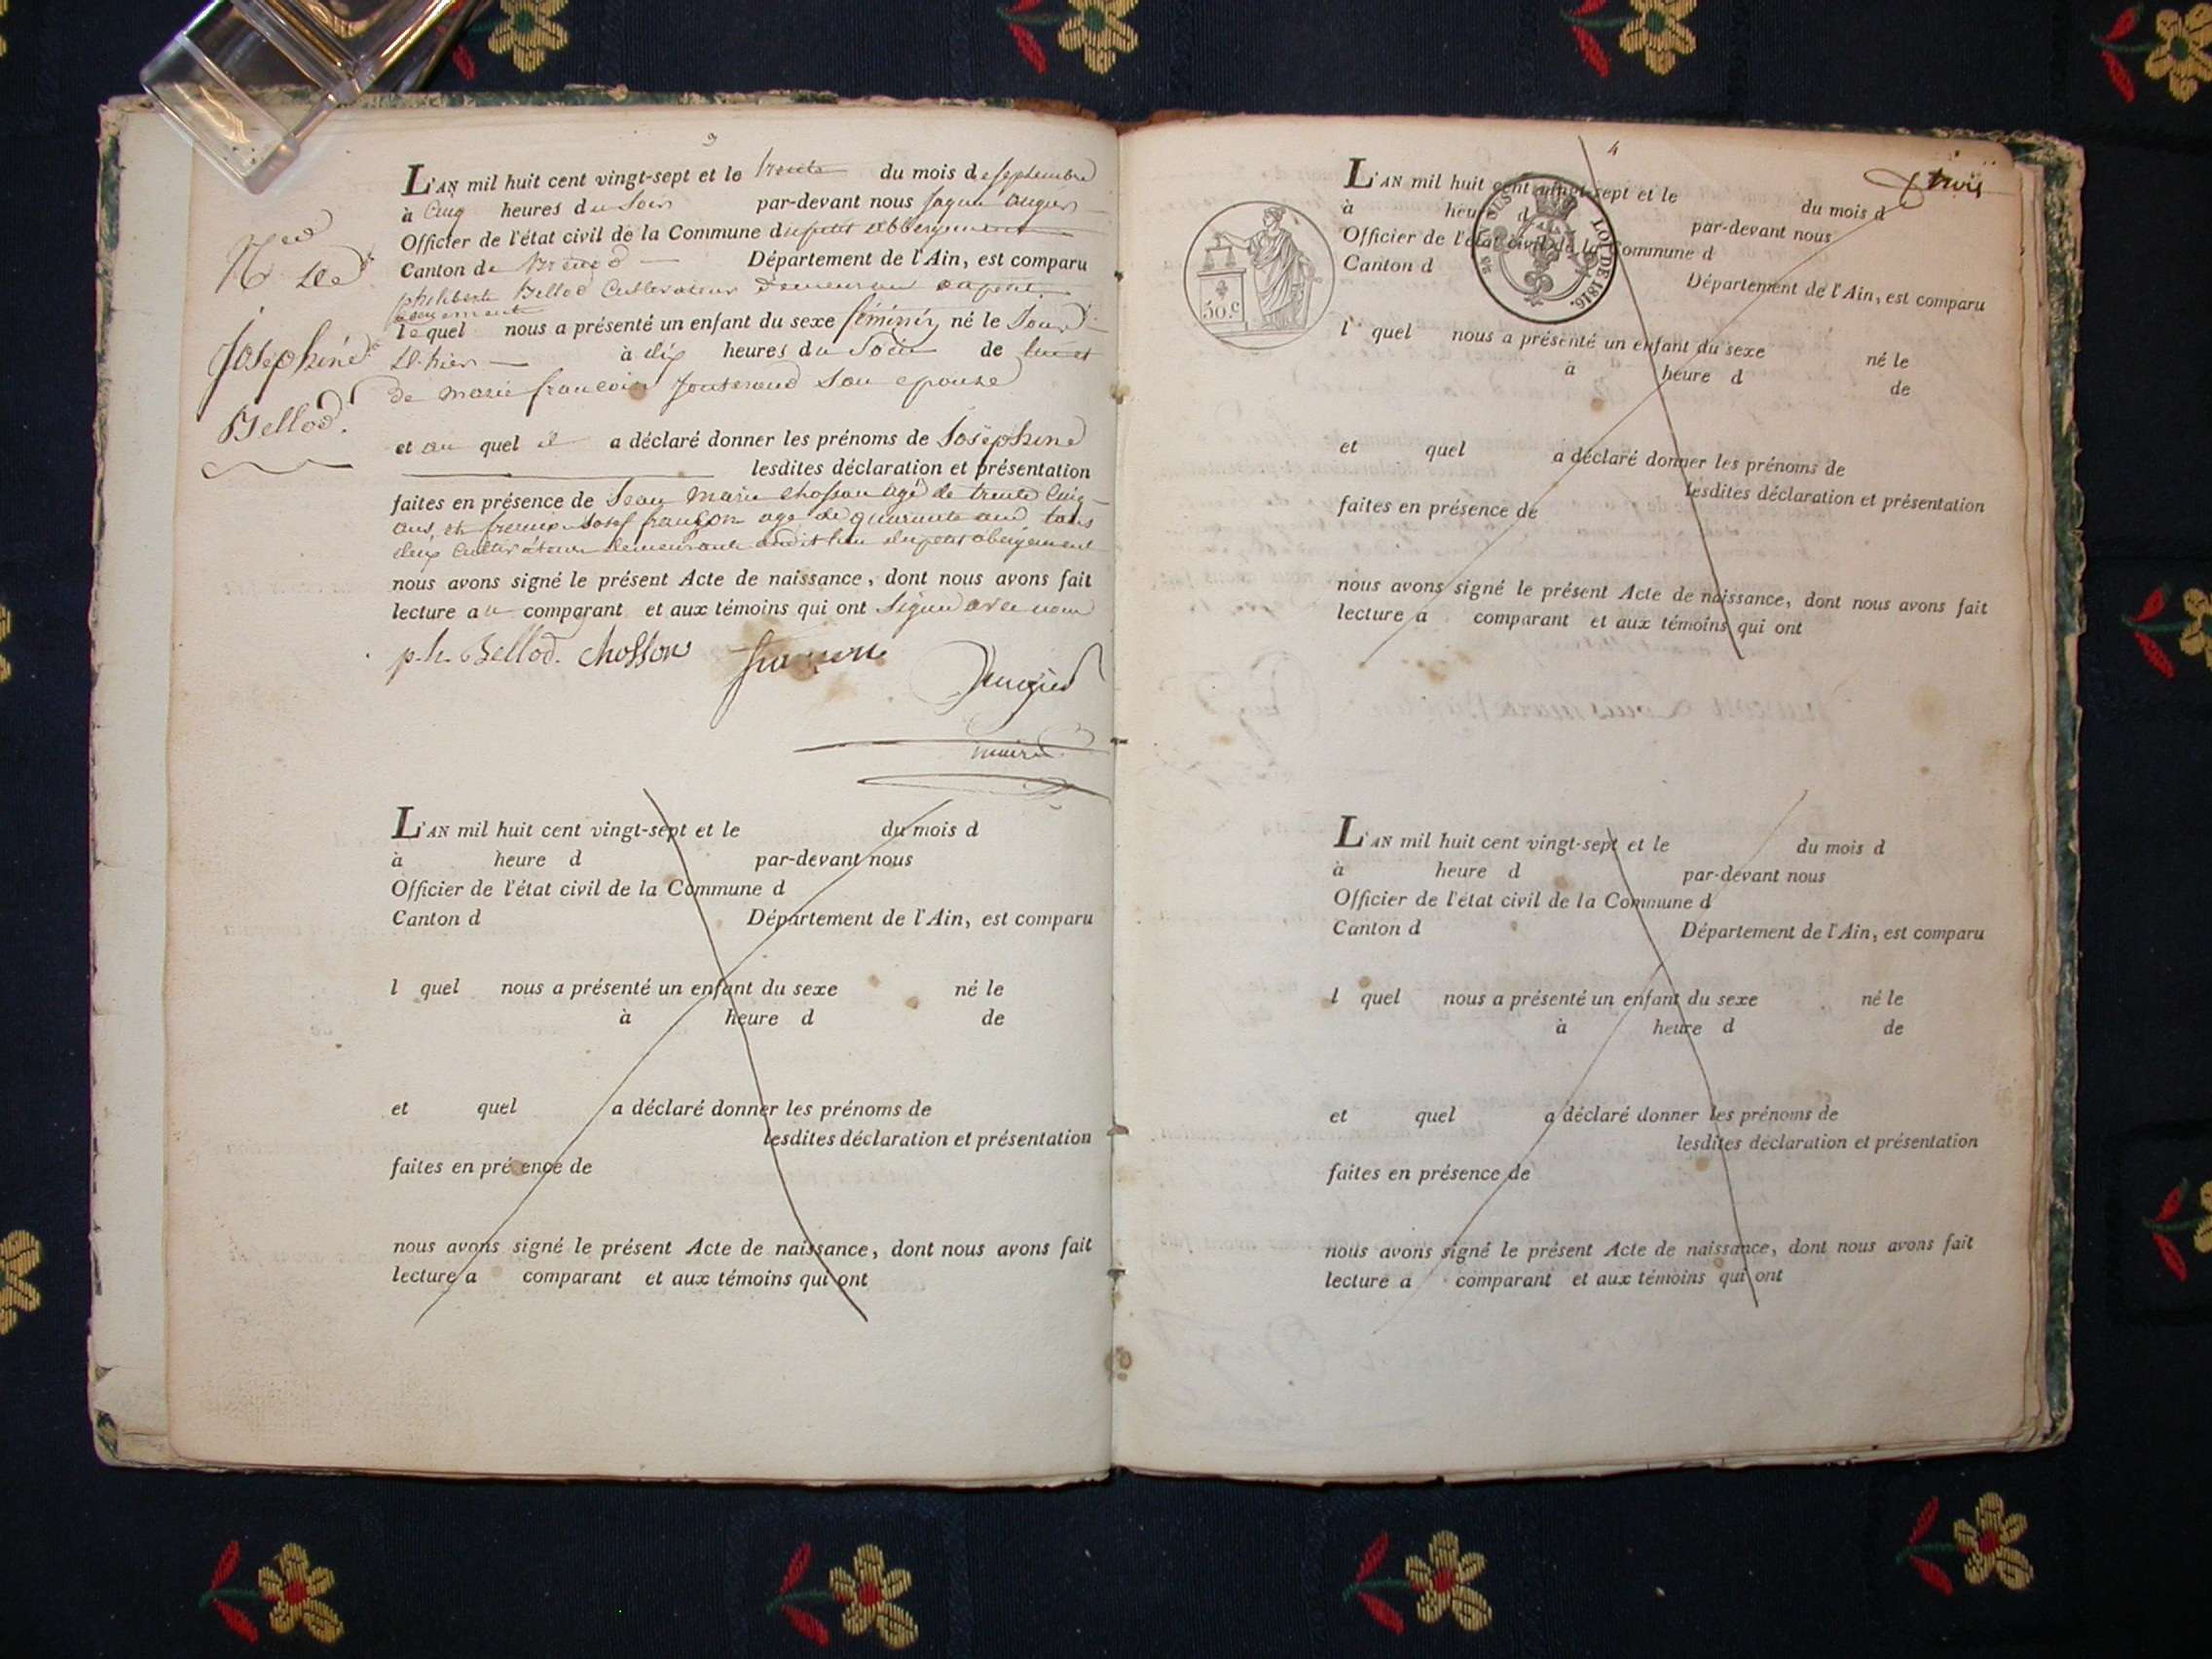 3
L'AN mil huit cent vingt-sept et le trente du mois de septembre
à cinq heures du soir par-devant nous Jaque augier
Officier de l'état civil de la Commune du petit abbergement
Canton de Département de l'Ain, est comparu
philiberte Bellod Cultivateur demeurant
lequel nous a présenté un enfant du sexe féminin né le Jour
d'hier à dix heures du Soir de lui et
de marie françoise Jouterand Son epouse
et au quel il a déclaré donner les prénoms de Joséphine
lesdites déclaration et présentation
faites en présence de Jean Marie Chosson agé de trente Cinq
ans, et françon age de quarante ans tous
deux Cultivateur demeurant audit lieu du petit abergement
nous avons signé le présent Acte de naissance, dont nous avons fait
lecture au comparant et aux témoins qui ont Signé avec nous
ph. Bellod. Chosson françon
augier
maire
Joséphine
Bellod.
L'AN mil huit cent vingt-sept et le du mois d
à heure d par-devant nous
Officier de l'état civil de la Commune d
Canton d Département de l'Ain, est comparu
l quel nous a présenté un enfant du sexe né le
à heure d de
et quel a déclaré donner les prénoms de
lesdites déclaration et présentation
faites en pré ence de
nous avons signé le présent Acte de naissance, dont nous avons fait
lecture a comparant et aux témoins qui ont
4
trois
L'AN mil huit cent vingt-sept et le du mois d
à heure d par-devant nous
Officier de l'état civil de la Commune d
Canton d Département de l'Ain, est comparu
LOI DE 1816.
50.c
l quel nous a présenté un enfant du sexe né le
à heure d de
et quel a déclaré donner les prénoms de
lesdites déclaration et présentation
faites en présence de
nous avons signé le présent Acte de naissance, dont nous avons fait
lecture a comparant et aux témoins qui ont
L'AN mil huit cent vingt-sept et le du mois d
à heure d par-devant nous
Officier de l'état civil de la Commune d
Canton d Département de l'Ain, est comparu
l quel nous a présenté un enfant du sexe né le
à heure d de
et quel a déclaré donner les prénoms de
lesdites déclaration et présentation
faites en présence de
nous avons signé le présent Acte de naissance, dont nous avons fait
lecture a comparant et aux témoins qui ont